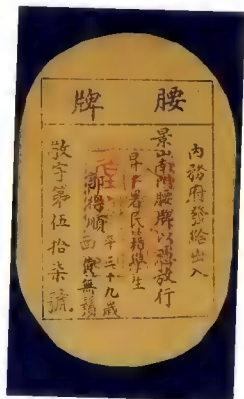 腰牌
內務府發給出入
景山南門腰牌以憑放行
昇平署民籍學生
年三十九歲
面 無鬚
敬字第伍拾柒號